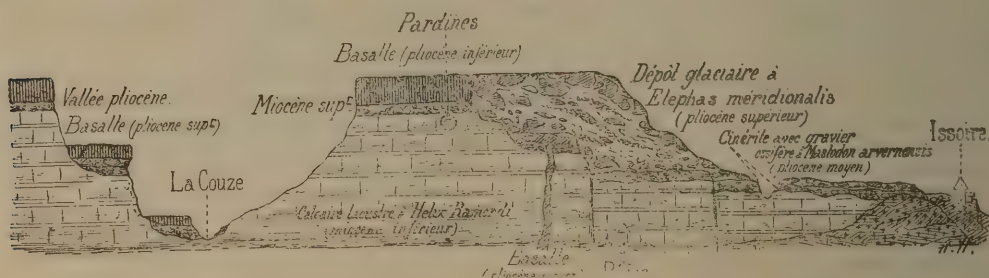 Pardines
Basalte (pliocène inférieur)
Vallée pliocène.
Basalte (pliocène supr)
Miocène supr
Dépôt glaciaire à
Elephas méridionalis
(pliocène supérieur)
Cinérite avec gravier
ossifère à Mastodon arvernensis
(pliocène moyen)
Issoire
La Couze
Calcaire lacustre à Helix Ramondi
inférieur)
Basalte